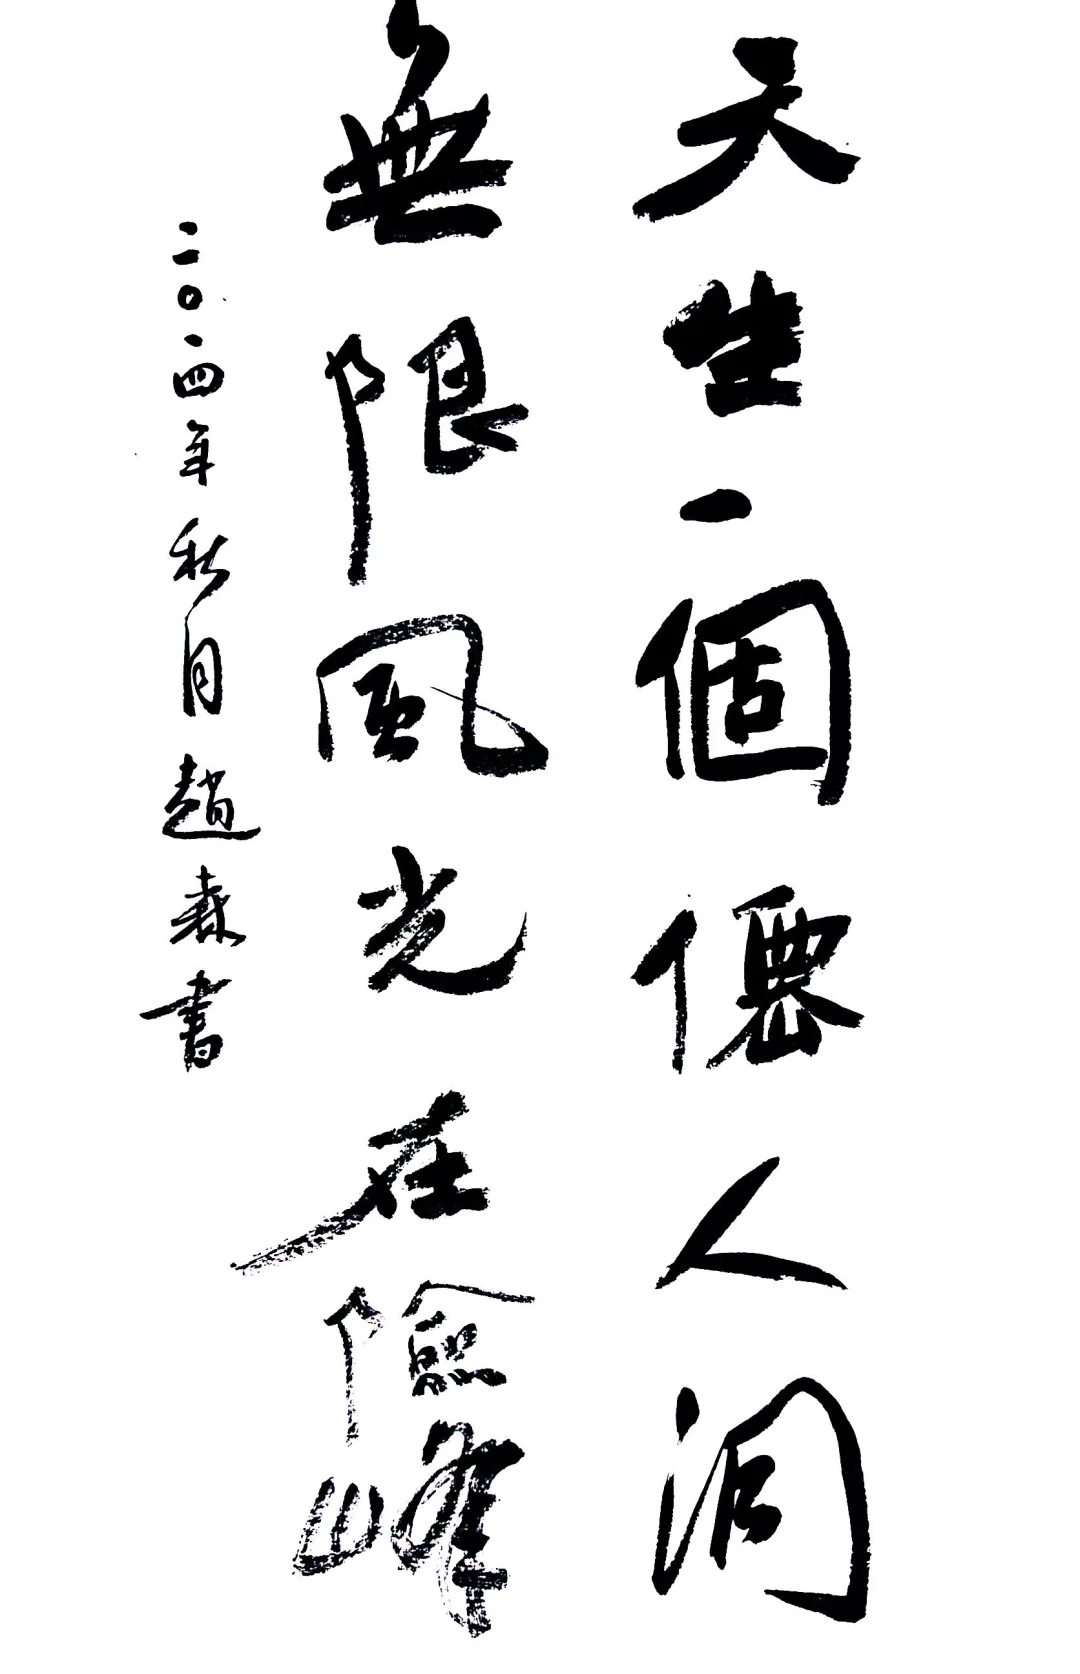 天生一個僊人洞
無限風光在險峰
二〇一四年秋月趙森書